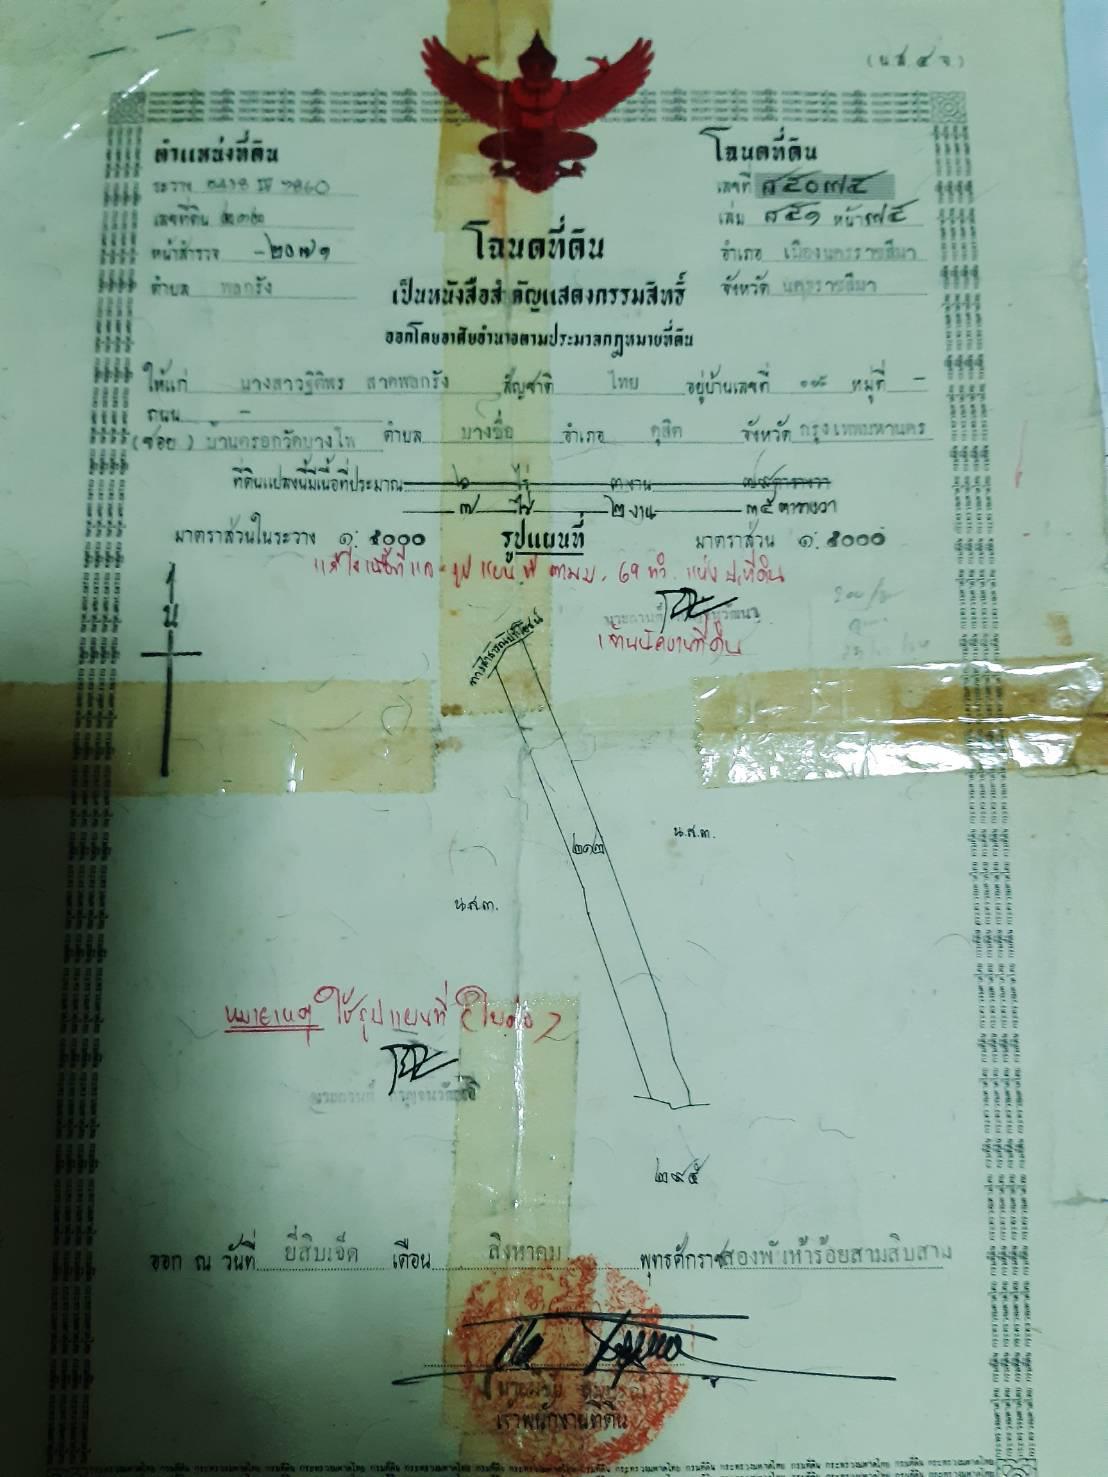 (น.ส. ๔ จ.)
ตำแหน่งที่ดิน
ระวาง 5438 IV 7860
เลขที่ดิน
หน้าสำรวจ -๒๐๗๑
ตำบล พลกรัง
โฉนดที่ดิน
เลขที่ ๘๕๐๗๕
เล่ม ๘๕๑ หน้า ๗๕
อำเภอ เมืองนครราชสีมา
จังหวัด นครราชสีมา
โฉนดที่ดิน
เป็นหนังสือสำคัญแสดงกรรมสิทธิ์
ออกโดยอาศัยอำนาจตามประมวลกฎหมายที่ดิน
ให้แก่ นางสาวฐิติพร ลาดพลกรัง สัญชาติ ไทย อยู่บ้านเลขที่ หมู่ที่ -
ถนน -
(ซอย) บ้านตรอกวัดบางโพ ตำบล บางซื่อ อำเภอ ดุสิต จังหวัด กรุงเทพมหานคร
ที่ดินแปลงนี้มีเนื้อที่ประมาณ ไร่ ๓ งาน ตารางวา
๗ ไร่ ๒ งาน ๓๕ ตารางวา
มาตราส่วนในระวาง ๑: ๕๐๐๐ รูปแผนที่ มาตราส่วน ๑: ๕๐๐๐
แก้ไขเนื้อที่และรูปแผนที่ ตาม ม. 69 ทวิ แห่ง ป.ที่ดิน
เจ้าพนักงานที่ดิน
น
ทางสาธารณประโยชน์
๒๑๒
น.ส.๓.
น.ส.๓.
หมายเหตุ ใช้รูปแผนที่ ใบต่อ
๒๙๕
ออก ณ วันที่ ยี่สิบเจ็ด เดือน สิงหาคม พุทธศักราช สองพันห้าร้อยสามสิบสาม
เจ้าพนักงานที่ดิน
กรมที่ดิน กระทรวงมหาดไทย